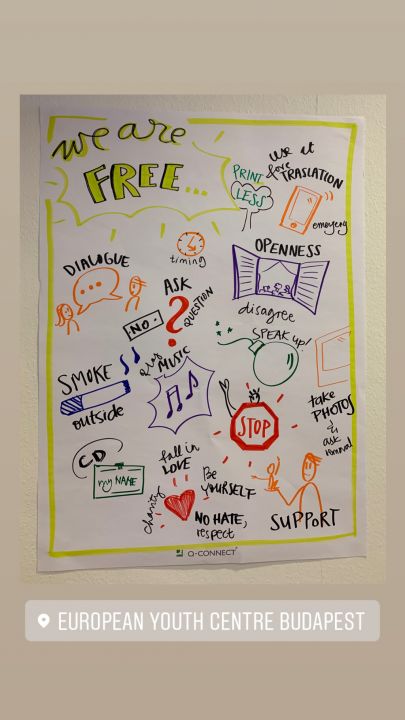 we are
FREE...
PRINT
LESS
use it
fore
TRASLATION
emergery
timing
DIALOGUE
ASK
QUESTION
?
.NO.
OPENNESS
disagree
SPEAK up!
SMOKE
outside
play
MUSIC
take
PHOTOS
&
ask
STOP
CD
my NAME
fall in
LOVE
charity
Be
YOURSELF
NO HATE,
respect
SUPPORT
Q-CONNECT
EUROPEAN YOUTH CENTRE BUDAPEST